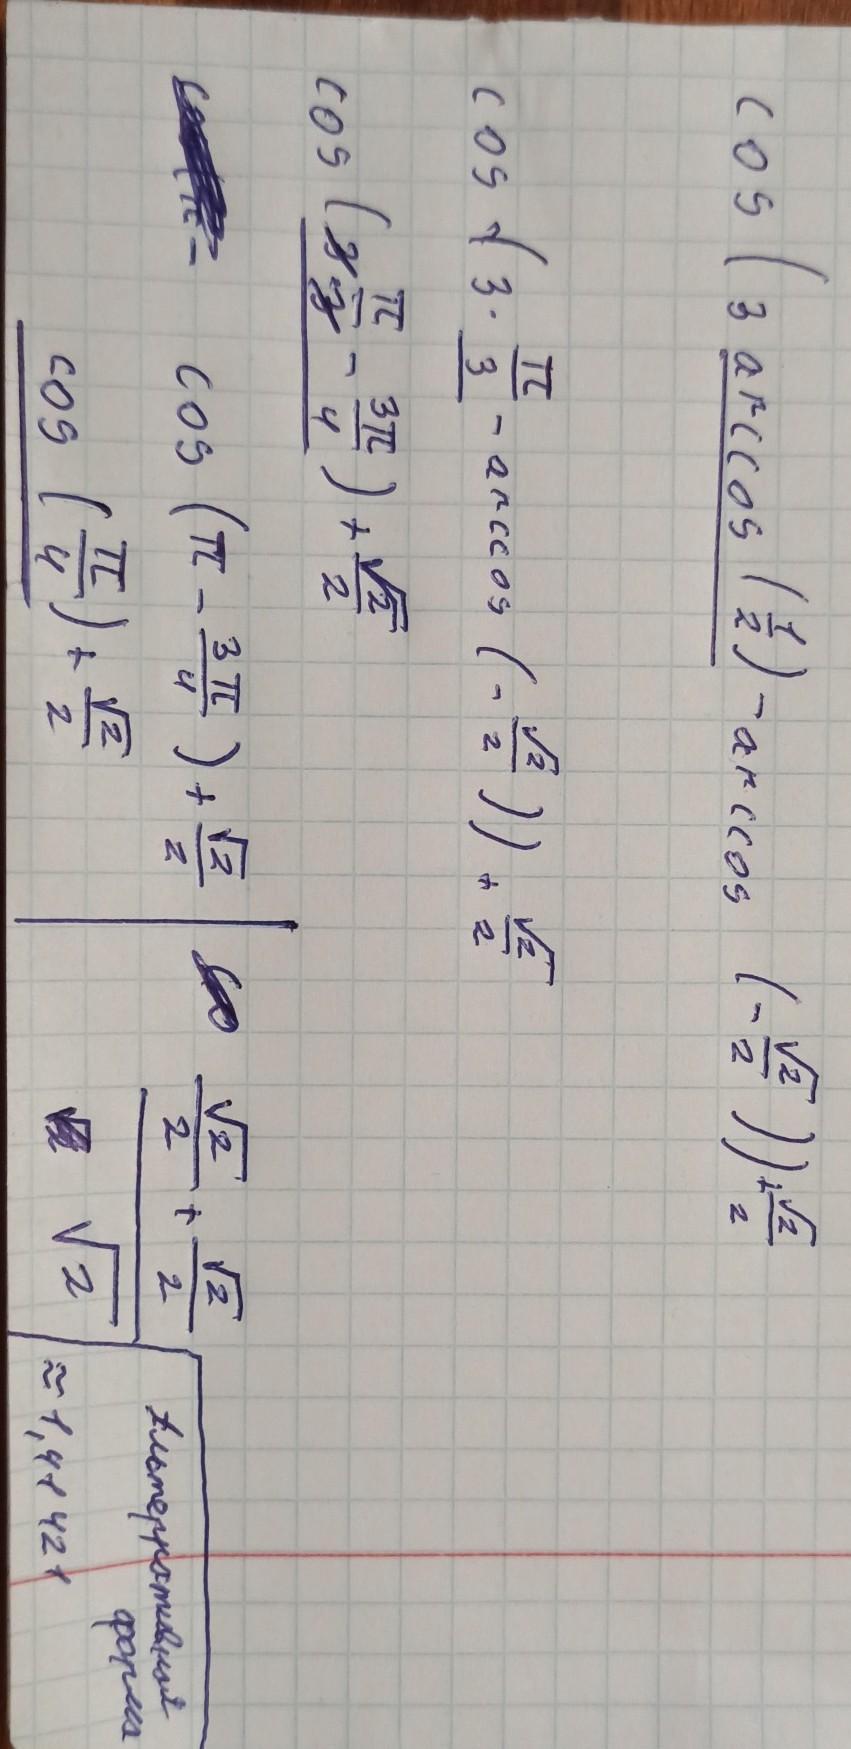 cos (3 arccos (1/2) - arccos (-√2/2)) + √2/2
cos (3 · π/3 - arccos (-√2/2)) + √2/2
cos (3 π/3 - 3π/4) + √2/2
cos (π - 3π/4) + √2/2
cos (π/4) + √2/2
√2/2 + √2/2
√2
Альтернативная
форма
≈ 1,41421